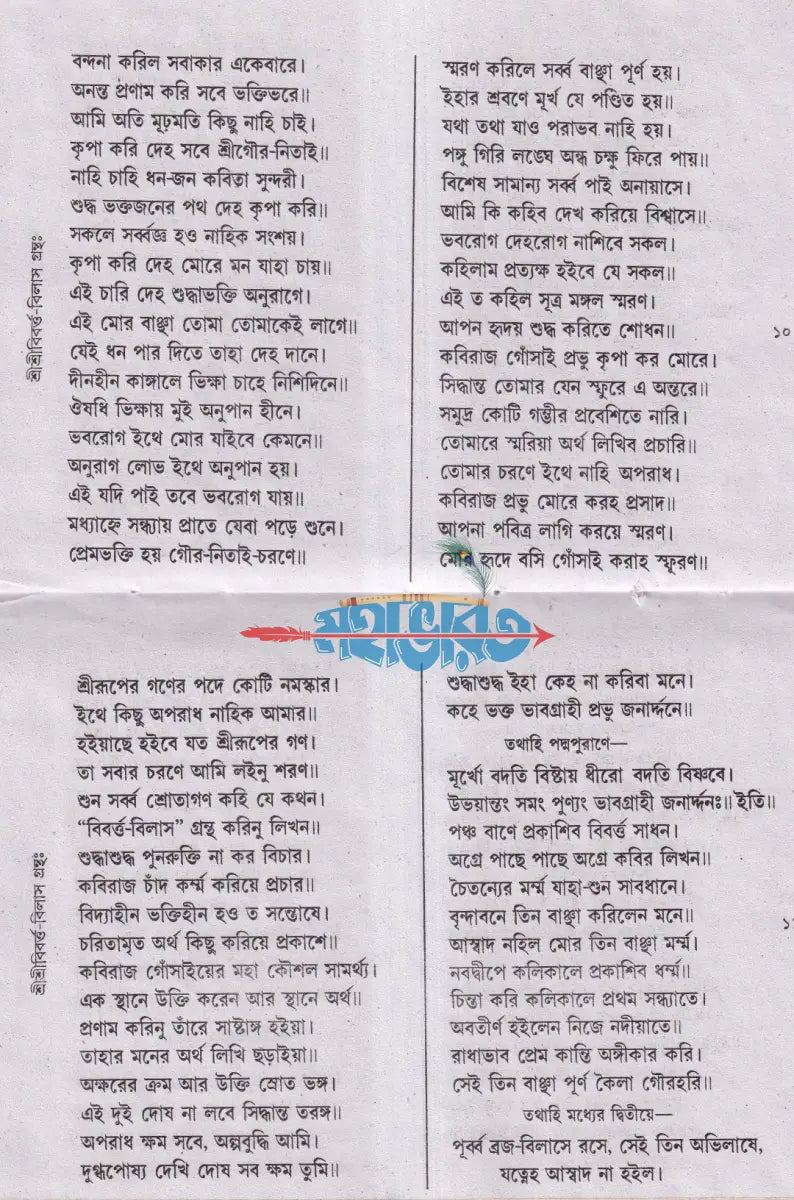 শ্রীশ্রীবিবর্ত্ত-বিলাস গ্রন্থঃ
বন্দনা করিল সবাকার একেবারে।
অনন্ত প্রণাম করি সবে ভক্তিভরে॥
আমি অতি মূঢ়মতি কিছু নাহি চাই।
কৃপা করি দেহ সবে শ্রীগৌর-নিতাই॥
নাহি চাহি ধন-জন কবিতা সুন্দরী।
শুদ্ধ ভক্তজনের পথ দেহ কৃপা করি॥
সকলে সর্ব্বজ্ঞ হও নাহিক সংশয়।
কৃপা করি দেহ মোরে মন যাহা চায়॥
এই চারি দেহ শুদ্ধাভক্তি অনুরাগে।
এই মোর বাঞ্ছা তোমা তোমাকেই লাগে॥
যেই ধন পার দিতে তাহা দেহ দানে।
দীনহীন কাঙ্গালে ভিক্ষা চাহে নিশিদিনে॥
ঔষধি ভিক্ষায় মুই অনুপান হীনে।
ভবরোগ ইথে মোর যাইবে কেমনে॥
অনুরাগ লোভ ইথে অনুপান হয়।
এই যদি পাই তবে ভবরোগ যায়॥
মধ্যাহ্নে সন্ধ্যায় প্রাতে যেবা পড়ে শুনে।
প্রেমভক্তি হয় গৌর-নিতাই-চরণে॥
স্মরণ করিলে সর্ব্ব বাঞ্ছা পূর্ণ হয়।
ইহার শ্রবণে মূর্খ যে পণ্ডিত হয়॥
যথা তথা যাও পরাভব নাহি হয়।
পঙ্গু গিরি লঙ্ঘে অন্ধ চক্ষু ফিরে পায়॥
বিশেষ সামান্য সর্ব্ব পাই অনায়াসে।
আমি কি কহিব দেখ করিয়ে বিশ্বাসে॥
ভবরোগ দেহরোগ নাশিবে সকল।
কহিলাম প্রত্যক্ষ হইবে যে সকল॥
এই ত কহিল সূত্র মঙ্গল স্মরণ।
আপন হৃদয় শুদ্ধ করিতে শোধন॥
কবিরাজ গোঁসাই প্রভু কৃপা কর মোরে।
সিদ্ধান্ত তোমার যেন স্ফুরে এ অন্তরে॥
সমুদ্র কোটি গম্ভীর প্রবেশিতে নারি।
তোমারে স্মরিয়া অর্থ লিখিব প্রচারি॥
তোমার চরণে ইথে নাহি অপরাধ।
কবিরাজ প্রভু মোরে করহ প্রসাদ॥
আপনা পবিত্র লাগি করয়ে স্মরণ।
মোর হৃদে বসি গোঁসাই করাহ স্ফূরণ॥
১০
মহাভারত
শ্রীশ্রীবিবর্ত্ত-বিলাস গ্রন্থঃ
শ্রীরূপের গণের পদে কোটি নমস্কার।
ইথে কিছু অপরাধ নাহিক আমার॥
হইয়াছে হইবে যত শ্রীরূপের গণ।
তা সবার চরণে আমি লইনু শরণ॥
শুন সর্ব্ব শ্রোতাগণ কহি যে কথন।
“বিবর্ত্ত-বিলাস” গ্রন্থ করিনু লিখন॥
শুদ্ধাশুদ্ধ পুনরুক্তি না কর বিচার।
কবিরাজ চাঁদ কর্ম্ম করিয়ে প্রচার॥
বিদ্যাহীন ভক্তিহীন হও ত সন্তোষে।
চরিতামৃত অর্থ কিছু করিয়ে প্রকাশে॥
কবিরাজ গোঁসাইয়ের মহা কৌশল সামর্থ্য।
এক স্থানে উক্তি করেন আর স্থানে অর্থ॥
প্রণাম করিনু তাঁরে সাষ্টাঙ্গ হইয়া।
তাহার মনের অর্থ লিখি ছড়াইয়া॥
অক্ষরের ক্রম আর উক্তি স্রোত ভঙ্গ।
এই দুই দোষ না লবে সিদ্ধান্ত তরঙ্গ॥
অপরাধ ক্ষম সবে, অল্পবুদ্ধি আমি।
দুগ্ধপোষ্য দেখি দোষ সব ক্ষম তুমি॥
শুদ্ধাশুদ্ধ ইহা কেহ না করিবা মনে।
কহে ভক্ত ভাবগ্রাহী প্রভু জনার্দ্দনে॥
তথাহি পদ্মপুরাণে—
মূর্খো বদতি বিষ্টায় ধীরো বদতি বিষ্ণবে।
উভয়ান্তং সমং পুণ্যং ভাবগ্রাহী জনার্দ্দনঃ॥ ইতি॥
পঞ্চ বাণে প্রকাশিব বিবর্ত্ত সাধন।
অগ্রে পাছে পাছে অগ্রে কবির লিখন॥
চৈতন্যের মর্ম্ম যাহা-শুন সাবধানে।
বৃন্দাবনে তিন বাঞ্ছা করিলেন মনে॥
আস্বাদ নহিল মোর তিন বাঞ্ছা মর্ম্ম।
নবদ্বীপে কলিকালে প্রকাশিব ধর্ম্ম॥
চিন্তা করি কলিকালে প্রথম সন্ধ্যাতে।
অবতীর্ণ হইলেন নিজে নদীয়াতে॥
রাধাভাব প্রেম কান্তি অঙ্গীকার করি।
সেই তিন বাঞ্ছা পূর্ণ কৈলা গৌরহরি॥
তথাহি মধ্যের দ্বিতীয়ে—
পূর্ব্ব ব্রজ-বিলাসে রসে, সেই তিন অভিলাষে,
যত্নেহ আস্বাদ না হইল।